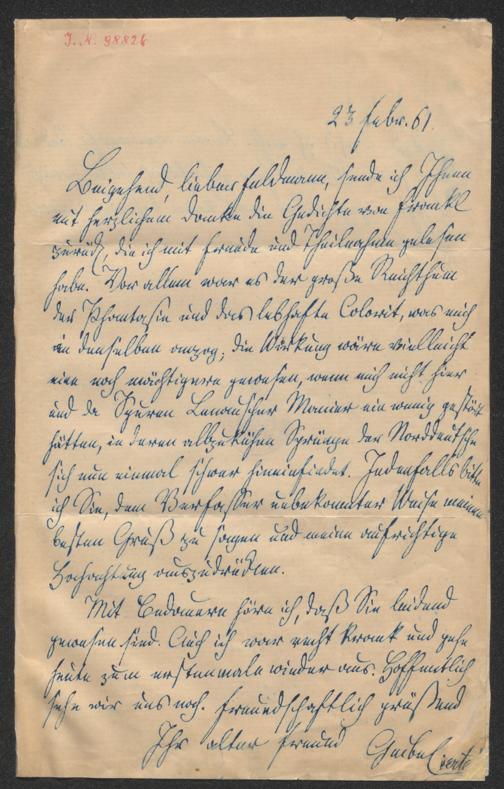 I. N. 98826
23 Febr. 61.
Beigehend, lieber Feldmann, sende ich Ihnen
mit herzlichem Danke die Gedichte von Frankl
zurück, die ich mit Freude und Theilnahme gelesen
habe. Vor allem war es der große Reichthum
der Phantasie und das lebhafte Colorit, was mich
an denselben anzog; die Wirkung wäre vielleicht
eine noch mächtigere gewesen, wenn mich nicht hier
und da Spuren Lenauscher Manier ein wenig gestört
hätten, in deren allzukühne Sprünge der Norddeutsche
sich nun einmal schwer hineinfindet. Jedenfalls bitte
ich Sie, dem Verfasser unbekannter Weise meinen
besten Gruß zu sagen und meine aufrichtige
Hochachtung auszudrücken.
Mit Bedauern höre ich, daß Sie leidend
gewesen sind. Auch ich war recht krank und gehe
heute zum erstenmale wieder aus. Hoffentlich
sehe wir uns noch. Freundschaftlich grüßend
Ihr alter Freund Geibel